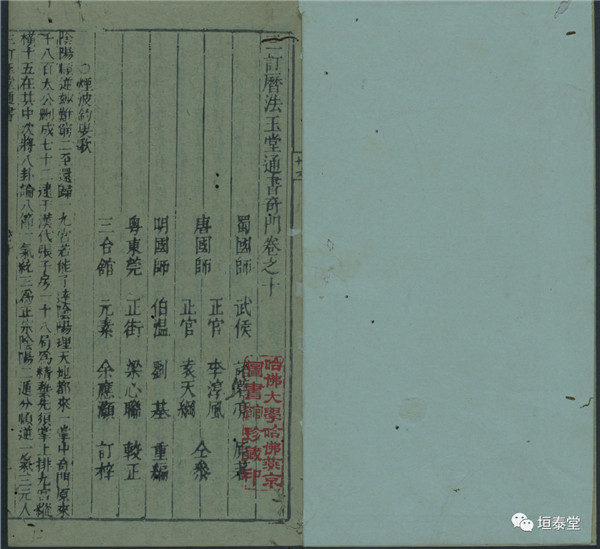 三訂曆法玉堂通書奇門卷之十
蜀國師 武侯
正官 李淳風
唐國師 仝參
正官 袁天綱
明國師 伯温 劉基 重編
粵東莞 正街 梁心聯 較正
三台館 元素 余應灝 訂梓
○煙波釣叟歌
陰陽順逆妙難窮二至還歸一九宮若能了達陰陽理天地都來一掌中奇門原來
千八百太公删成七十二逮于漢代張子房一十八局為精藝先須掌上排九宮縱
橫十五在其中次將八卦論八節一氣統三為正宗陰陽二遁分順逆一氣三元人
哈佛大學哈佛燕京
圖書館珍藏印
垣泰堂